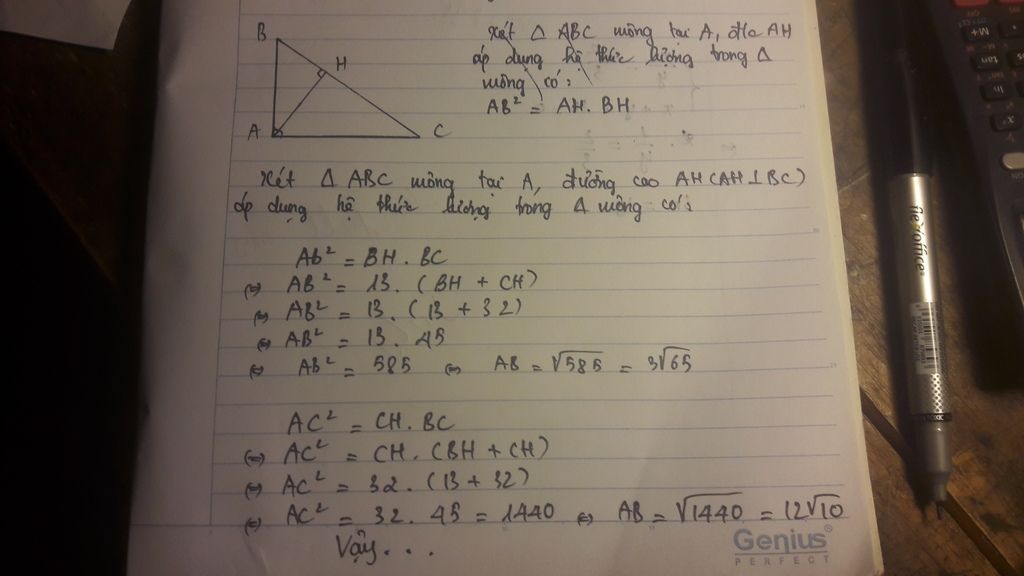 B
H
A
C
Xét Δ ABC vuông tại A, đ/c AH
áp dụng hệ thức lượng trong Δ
vuông có:
AB² = AH. BH
Xét Δ ABC vuông tại A, đường cao AH (AH ⊥ BC)
áp dụng hệ thức lượng trong Δ vuông có:
Ab² = BH. BC
(=) AB² = 13. (BH + CH)
(=) AB² = 13. (13 + 32)
(=) AB² = 13. 45
(=) Ab² = 585 (=) AB = √585 = 3√65
AC² = CH. BC
(=) AC² = CH. (BH + CH)
(=) AC² = 32. (13 + 32)
(=) AC² = 32. 45 = 1440 (=) AB = √1440 = 12√10
Vậy...
Genius
PERFECT
flexoffice
M+
tan
ln